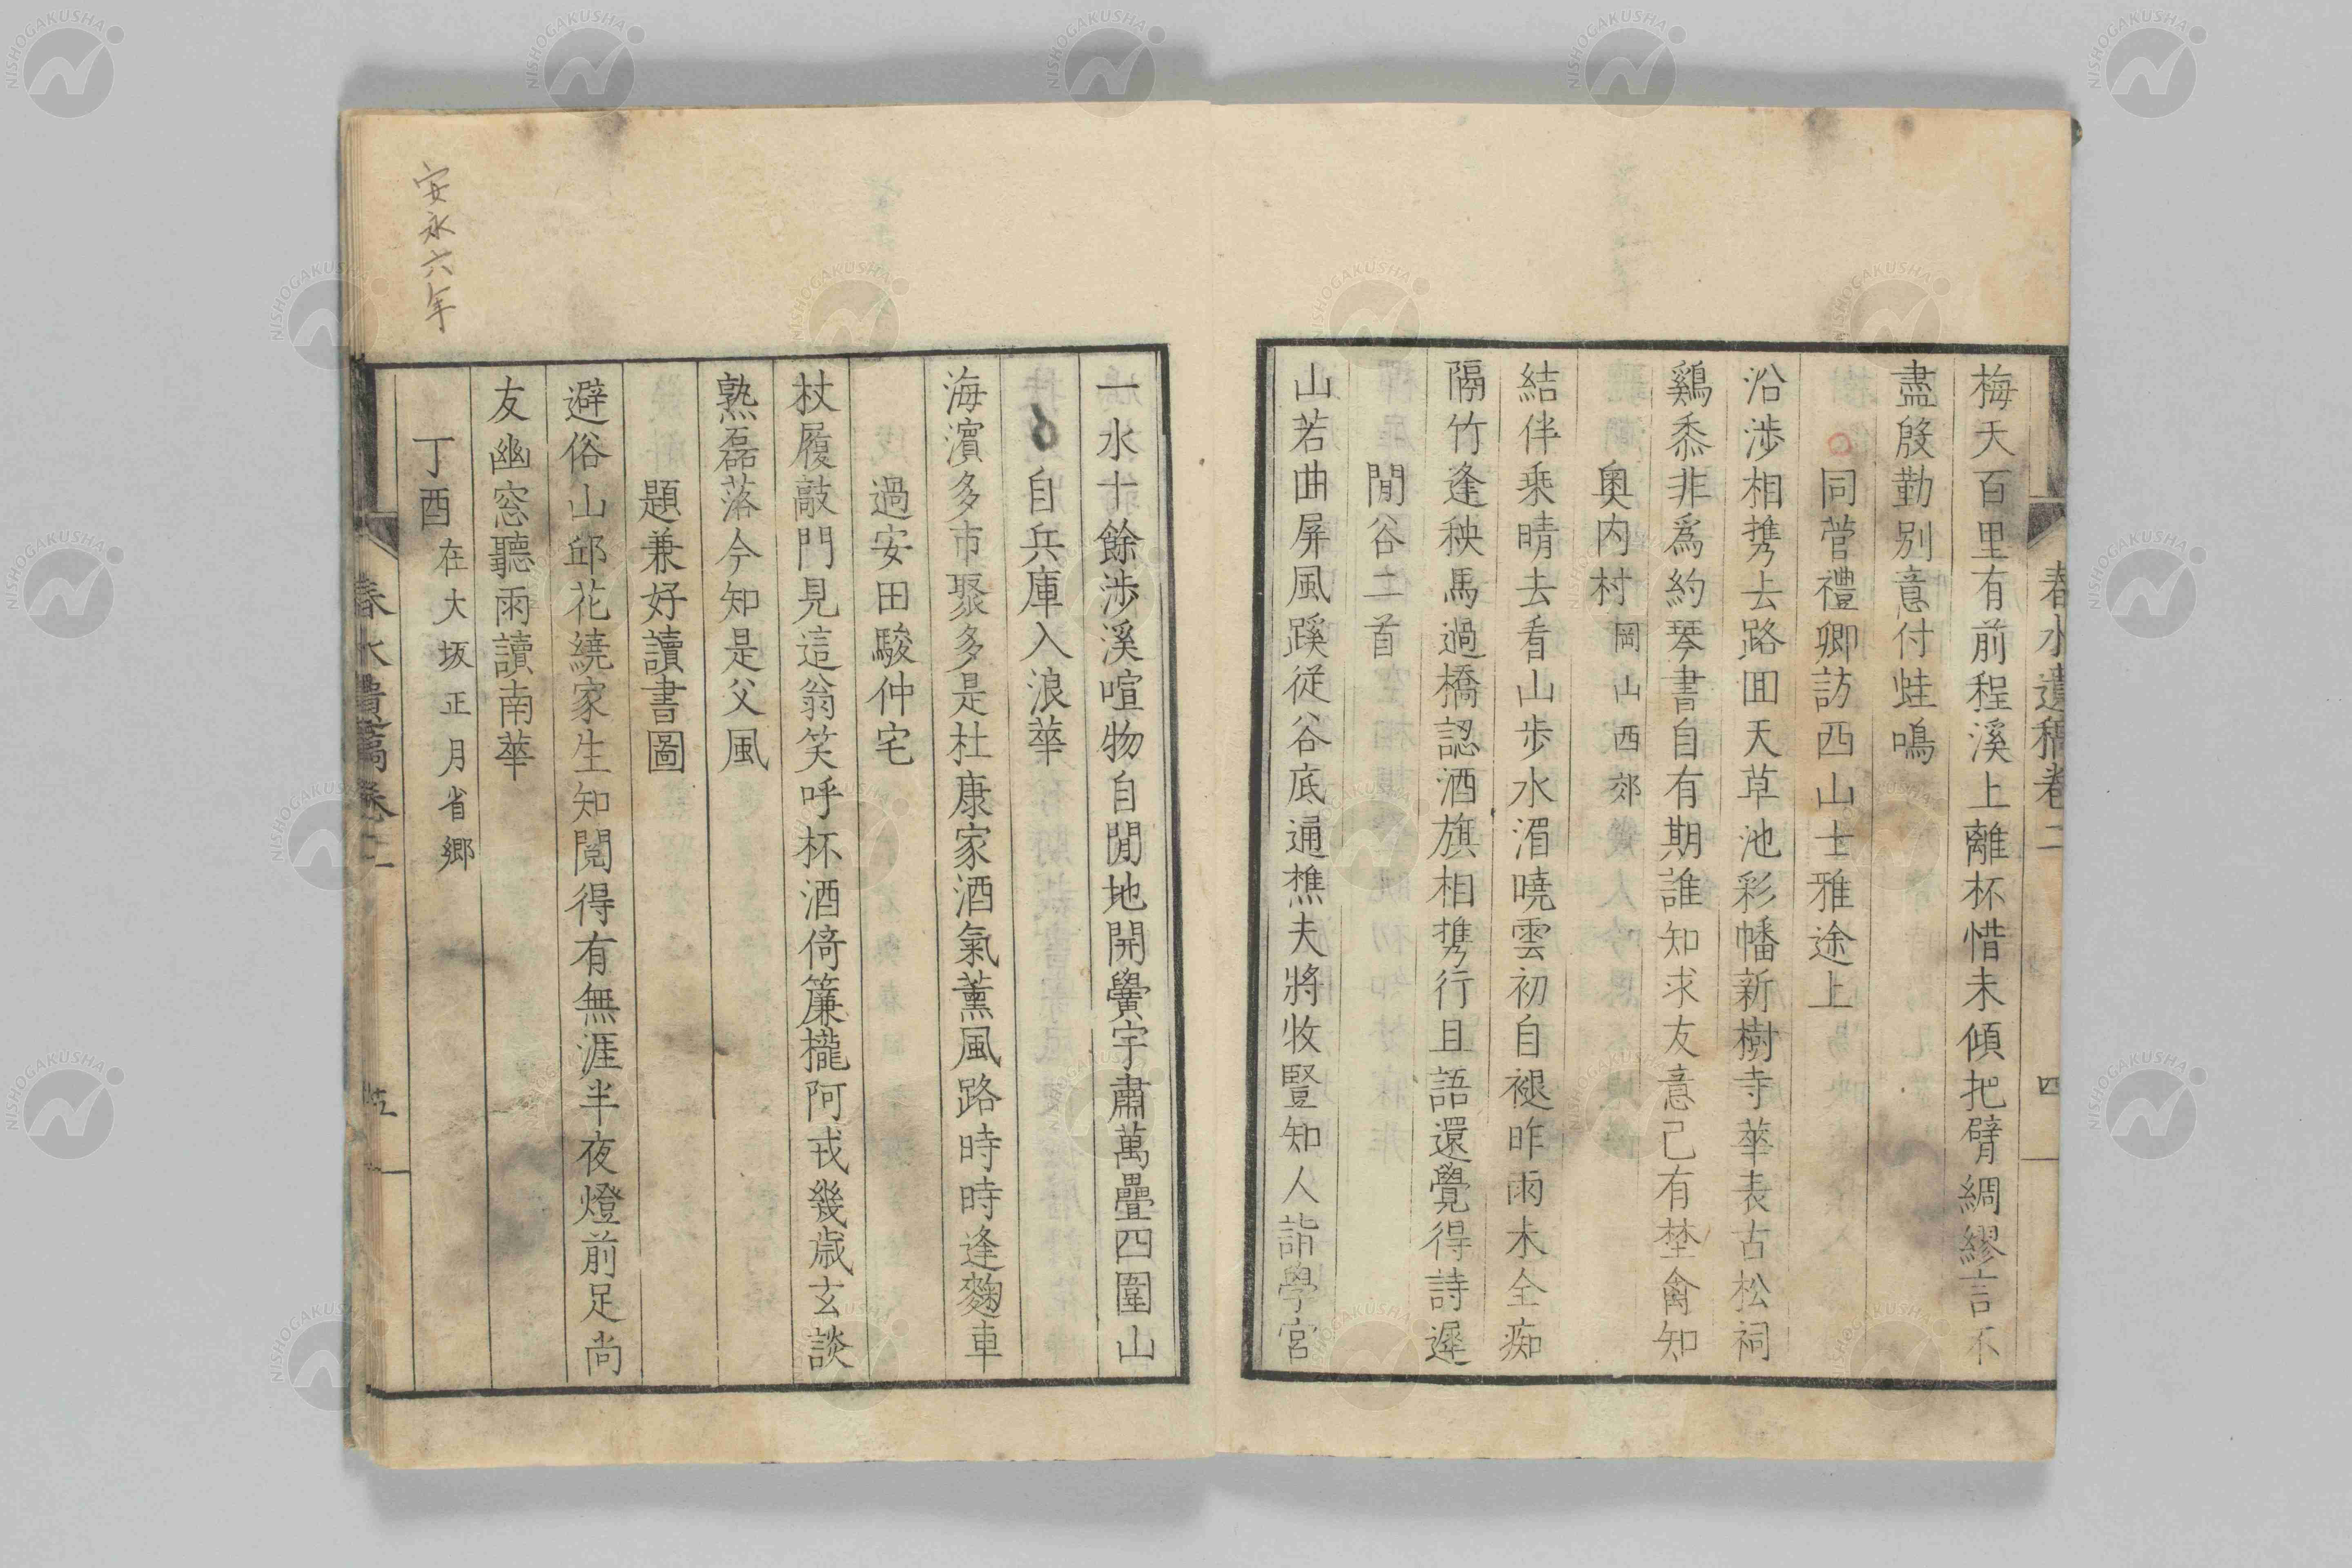 春水遺稿卷二
四
梅天百里有前程溪上離杯惜未傾把臂綢繆言不
盡殷勤別意付蛙鳴
同菅禮卿訪西山士雅途上
沿涉相携去路囬天草池彩幡新樹寺華表古松祠
鷄黍非爲約琴書自有期誰知求友意已有埜禽知
奥内村岡山西郊
結伴乗晴去看山歩水湄曉雲初自褪昨雨未全痴
隔竹逢秧馬過橋認酒旗相携行且語還覺得詩遲
閒谷二首
山若曲屏風蹊従谷底通樵夫將牧豎知人詣學宮
一水十餘渉溪喧物自閒地開黌宇肅萬疊四圍山
自兵庫入浪華
海濵多市聚多是杜康家酒氣薫風路時時逢麴車
過安田駿仲宅
杖履敲門見這翁笑呼杯酒倚簾櫳阿戎幾歳玄談
熟磊落今知是父風
題兼好讀書圖
避俗山邱花繞家生知閲得有無涯半夜燈前足尚
友幽窓聽雨讀南華
丁酉在大坂正月省郷
安永六年
春水遺稿卷二
五
NISHOGAKUSHA